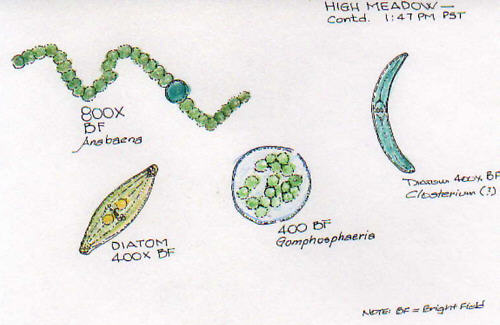 HIGH MEADOW—
Contd. 1:47 PM PST
800X
BF
Anabaena
400X BF
Closterium (?)
DIATOM
400X BF
400 BF
Gomphosphaeria
NOTE: BF = Bright Field